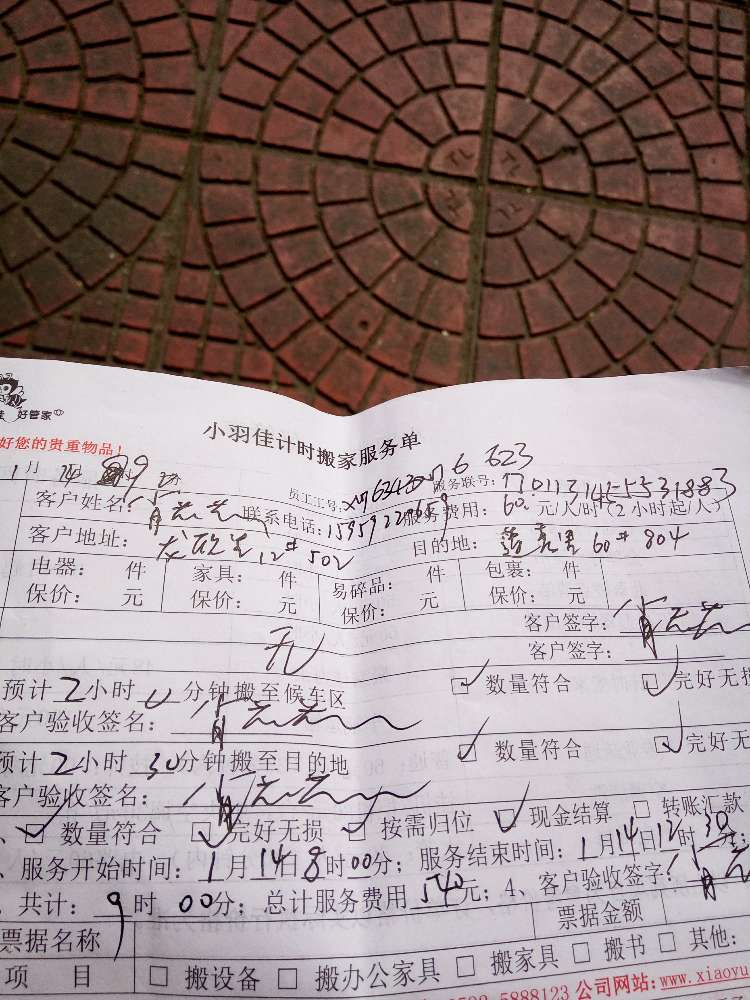 好管家
小羽佳计时搬家服务单
好您的贵重物品!
1月 14
员工工号: 服务联号:
客户姓名: 肖芸芸 联系电话: 服务费用: 60 元/人/时(2小时起/人)
客户地址: 12# 502 目的地: 60# 804
电器: 件 家具: 件 易碎品: 件 包裹: 件
保价: 元 保价: 元 保价: 元 保价: 元
客户签字: 肖芸芸
无 客户签字:
预计 2 小时 0 分钟搬至候车区 ☑ 数量符合 ☑ 完好无损
客户验收签名: 肖芸芸
预计 2 小时 30 分钟搬至目的地 ☑ 数量符合 ☑ 完好无
客户验收签名: 肖芸芸
☑ 数量符合 ☑ 完好无损 ☑ 按需归位 ☑ 现金结算 □ 转账汇款
、服务开始时间: 1 月 14 日 8 时 00 分; 服务结束时间: 1 月 14 日 12 时 30
、共计: 9 时 00 分; 总计服务费用 540 元; 4、客户验收签字:
票据名称 票据金额
项 目 □ 搬设备 □ 搬办公家具 □ 搬家具 □ 搬书 □ 其他:
5888123 公司网站: www.xiaoyu